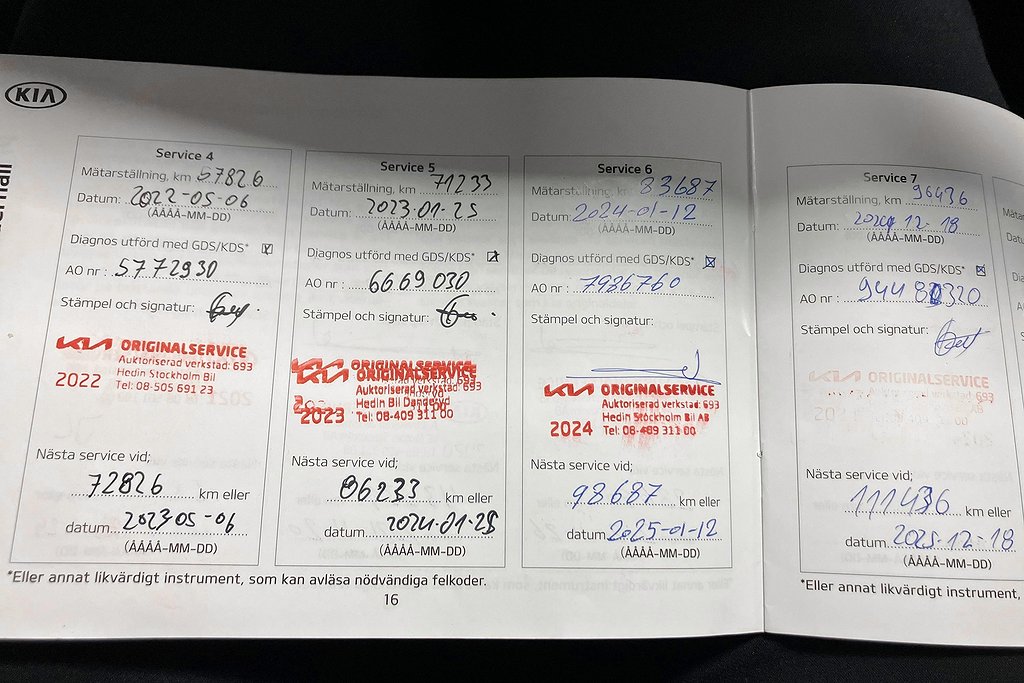 KIA
Service 4
Mätarställning, km 57826
Datum: 2022-05-06
(ÅÅÅÅ-MM-DD)
Diagnos utförd med GDS/KDS*
AO nr : 5772930
Stämpel och signatur:
KIA ORIGINALSERVICE
Auktoriserad verkstad: 693
Hedin Stockholm Bil
2022 Tel: 08-505 691 23
Nästa service vid;
72826 km eller
datum 202305-06
(ÅÅÅÅ-MM-DD)
Service 5
Mätarställning, km 71233
Datum: 2023-01-25
(ÅÅÅÅ-MM-DD)
Diagnos utförd med GDS/KDS*
AO nr : 6669030
Stämpel och signatur:
ORIGINALSERVICE
ORIGINALSERVICE
Auktoriserad verkstad: 693
Hedin Bil Danderyd
2023 Tel: 08-409 311 00
Nästa service vid;
86233 km eller
datum 2024-01-25
(ÅÅÅÅ-MM-DD)
Service 6
Mätarställning, km 83687
Datum: 2024-01-12
(ÅÅÅÅ-MM-DD)
Diagnos utförd med GDS/KDS*
AO nr : 7986760
Stämpel och signatur:
KIA ORIGINALSERVICE
Auktoriserad verkstad: 693
Hedin Stockholm Bil AB
2024 Tel: 08-409 311 00
Nästa service vid;
98687 km eller
datum 2025-01-12
(ÅÅÅÅ-MM-DD)
*Eller annat likvärdigt instrument, som kan avläsa nödvändiga felkoder.
16
Service 7
Mätarställning, km 96436
Datum: 2024 12-18
(ÅÅÅÅ-MM-DD)
Diagnos utförd med GDS/KDS*
AO nr :
Stämpel och signatur:
KIA ORIGINALSERVICE
Auktoriserad verkstad: 693
Hedin Stockholm Bil AB
Nästa service vid;
111436 km eller
datum 2025-12-18
(ÅÅÅÅ-MM-DD)
*Eller annat likvärdigt instrument,